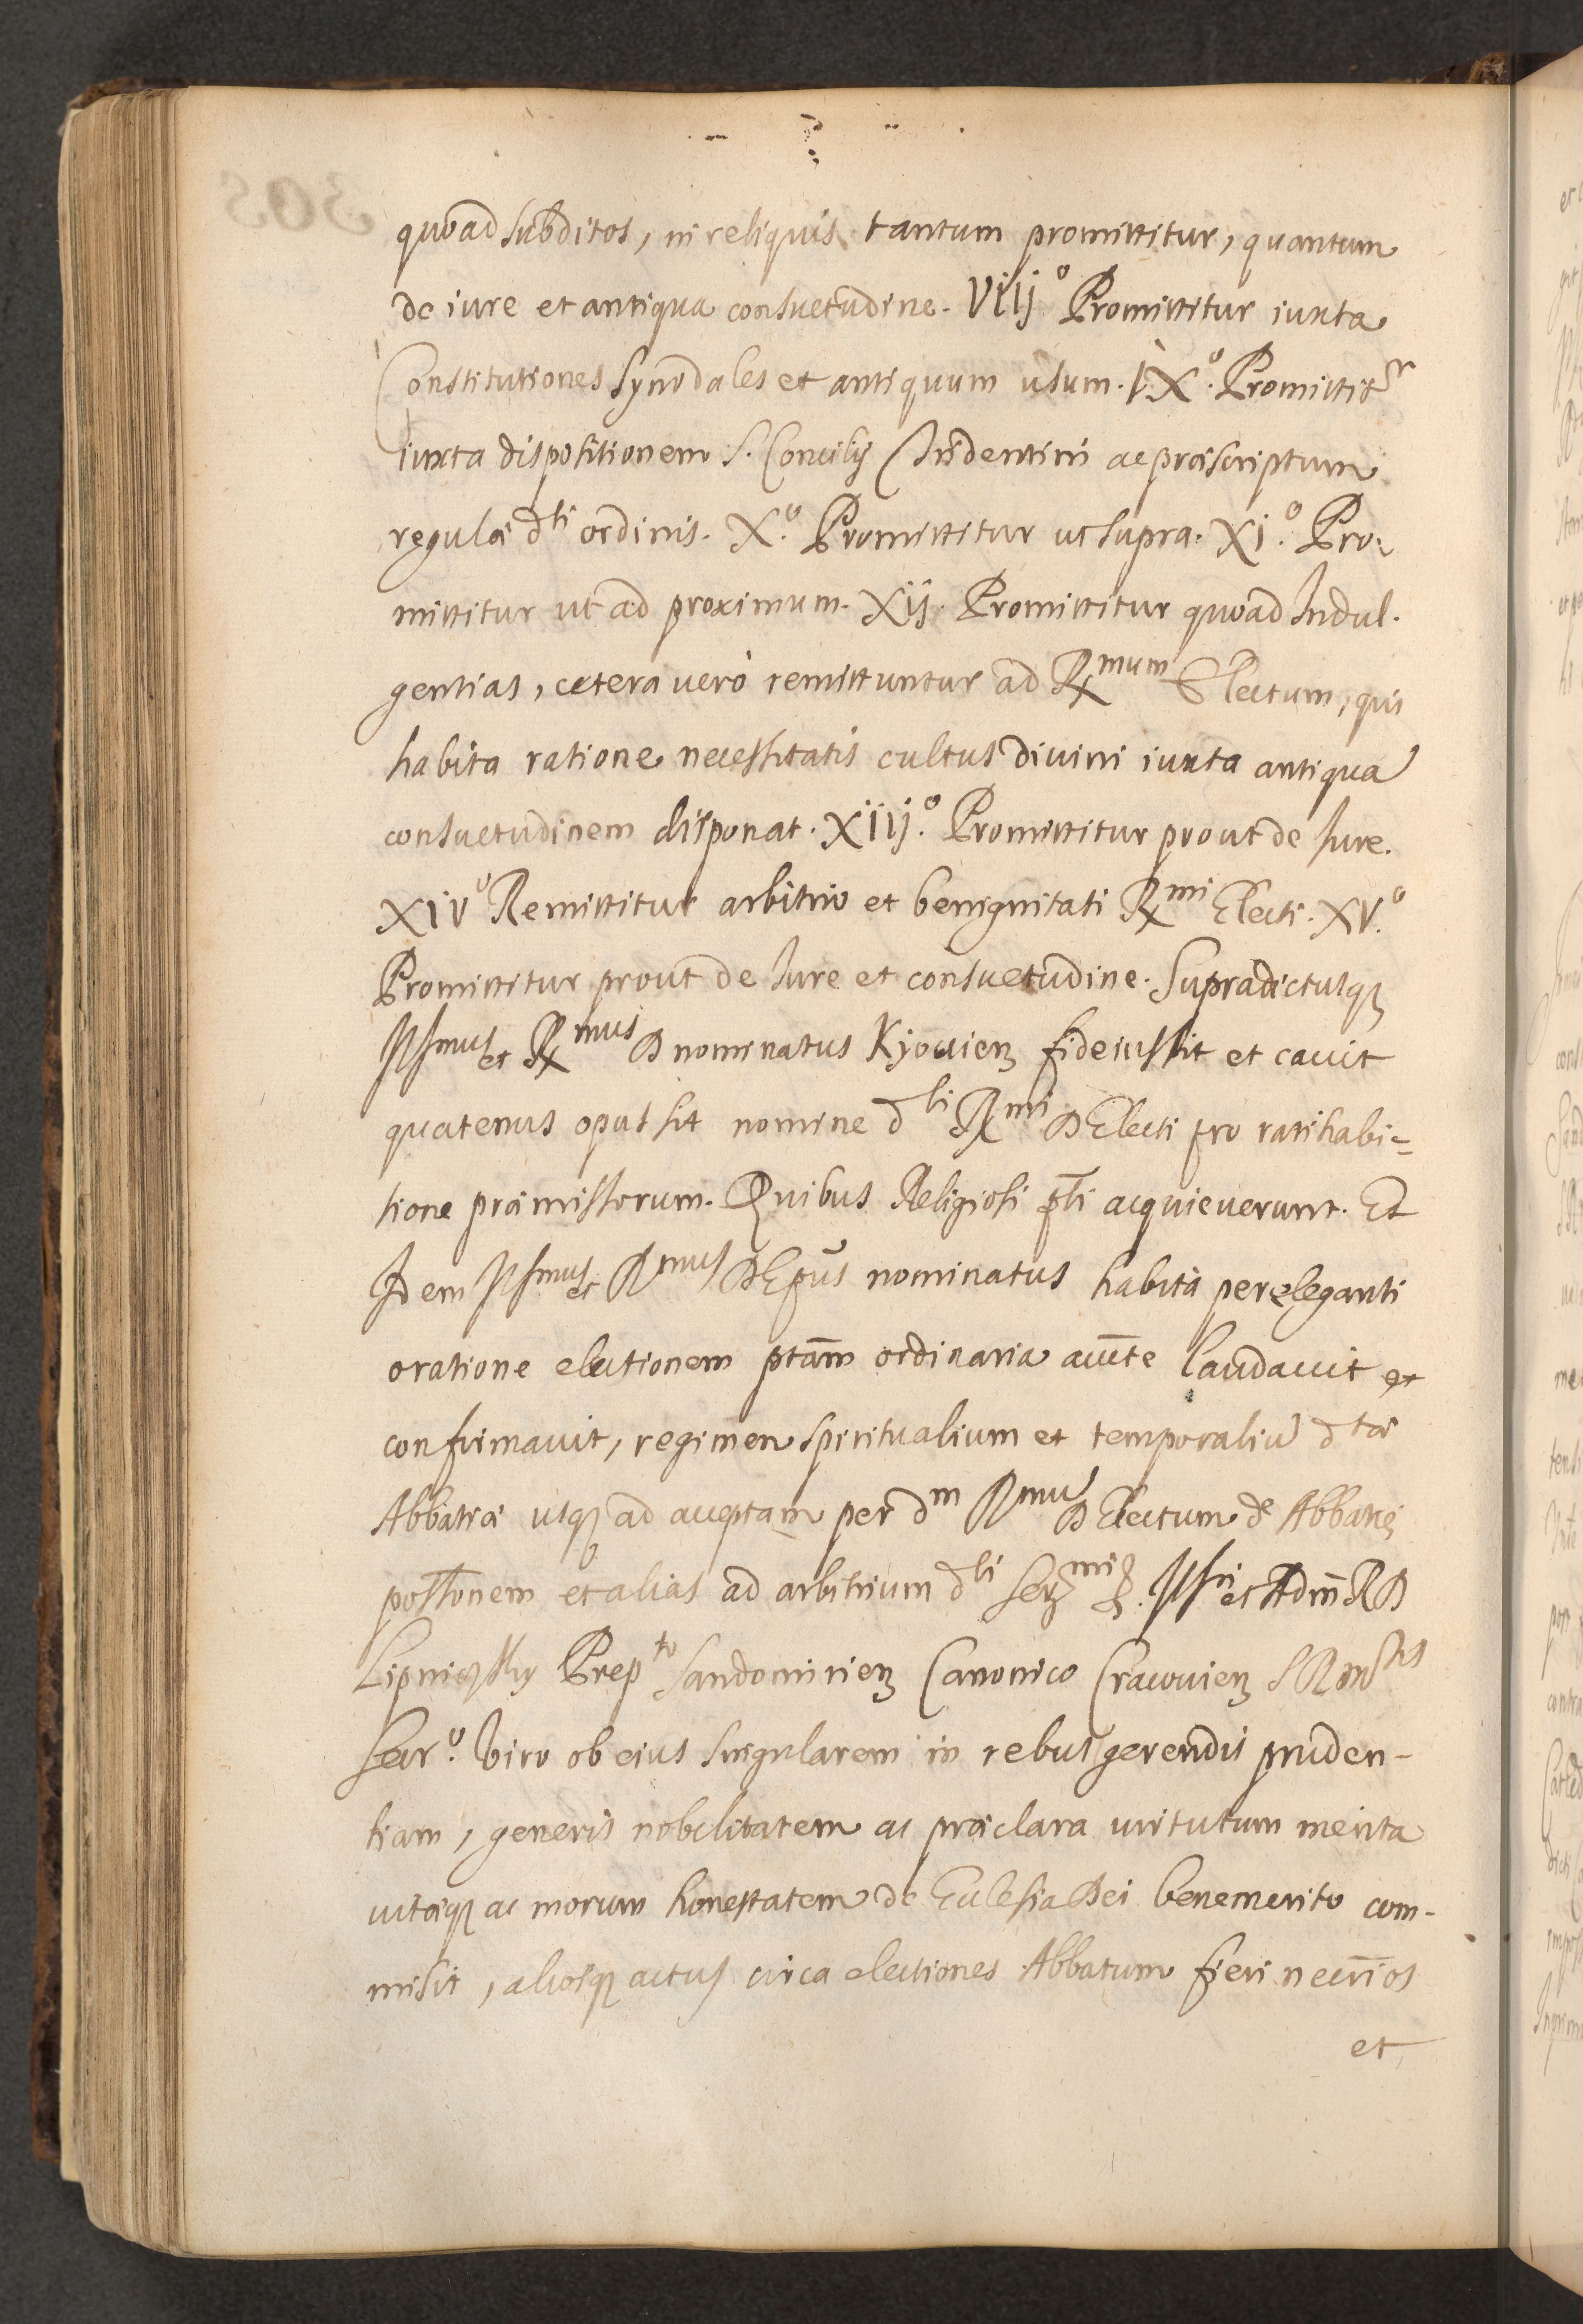 quoad subditos, in reliquis tantum promittitur, quantum
de iure et antiqua consuetudine. Viij.º Promittitur iuxta
Constitutiones Synodales et antiquum usum. iX.º Promittitr
iuxta dispositionem S. Concilij Tridentini ac præscriptum
regulæ dti ordinis. X.º Promittitur ut supra. Xi.º Pro-
mittitur ut ad proximum. Xij. Promittitur quoad Indul-
gentias, cetera verò remittuntur ad Rmum Electum, quis
habita ratione necessitatis cultus divini iuxta antiquã
consuetudinem disponat. Xiij.º Promittitur prout de Iure.
Xivº Remittitur arbitrio et benignitati Rmi Electi. XV.º
Promittitur prout de Iure et consuetudine. Supradictusq3
Illmus et Rmus D nominatus Kyovien3 fideiussit et cavit
quatenus opus sit nomine dti Rmi D Electi pro ratihabi=
tione præmissorum. Quibus Religiosi pti acquieverunt. Et
Idem Illmus et Rmus D Epus nominatus habità pereleganti
oratione electionem ptam ordinaria aucte laudavit et
confirmavit, regimen spiritualium et temporaliũ dtæ
Abbatiæ usq3 ad acceptam per dm Rmũ D Electum dæ Abbatiæ
possionem et alias ad arbitrium dti Illmi et Admr RD
Lipnicky Prepto Sandomirien3 Canonico Cracovien3 SRMtis
Secr.º Viro ob eius singularem in rebus gerendis pruden-
tiam, generis nobilitatem ac præclara virtutum merita
vitæq3 ac morum honestatem de Ecclesia Dei benemerito com-
misit, aliosq3 actus circa electiones Abbatum fieri necrios
et